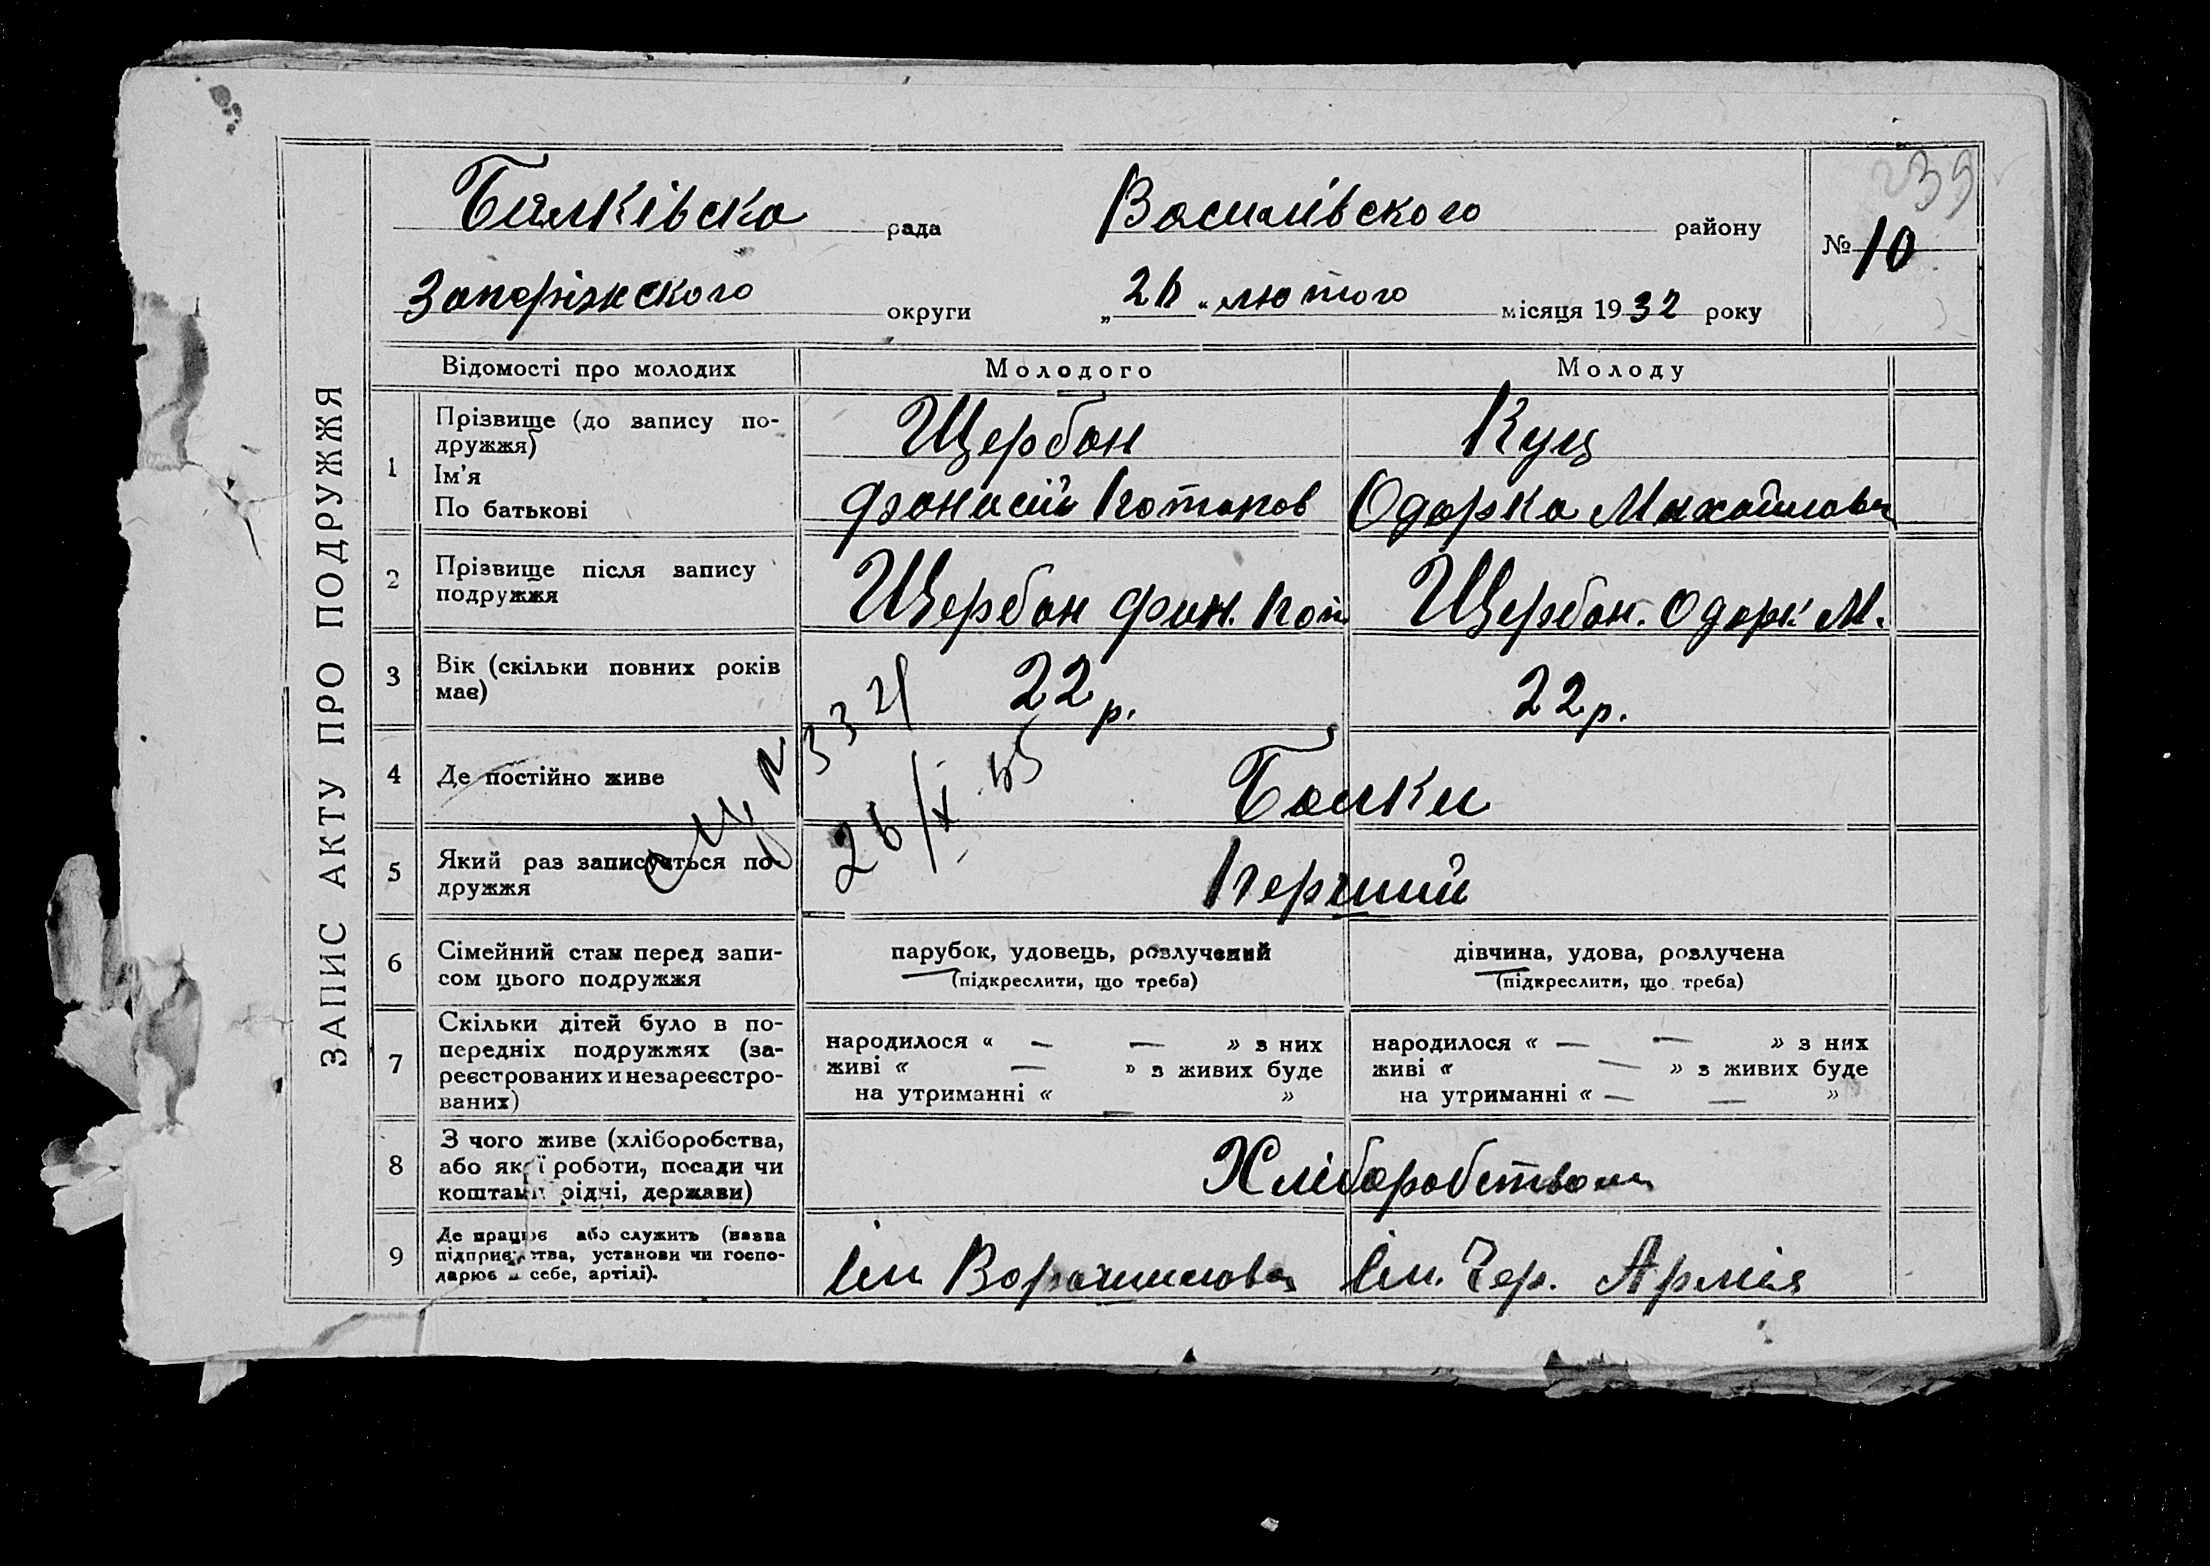 239
Балківска рада Василівского району
№ 10
Запоріжского округи „26" лютого місяця 1932 року
ЗАПИС АКТУ ПРО ПОДРУЖЖЯ
Відомості про молодих Молодого Молоду
1 Прізвище (до запису по-
дружжя) Щербан Куц
Ім'я
По батькові Фанасій Потапов Одарка Михайловн
2 Прізвище після запису
подружжя Щербан Фан. Пот Щербан. Одарк М.
3 Вік (скільки повних років
має) 22 р. 22 р.
4 Де постійно живе Балки
26/X 45
5 Який раз записується по-
дружжя Перший
6 Сімейний стан перед запи-
сом цього подружжя
парубок, удовець, розлучений дівчина, удова, розлучена
(підкреслити, що треба) (підкреслити, що треба)
7 Скільки дітей було в по-
передніх подружжях (за-
реєстрованих и незареєстро-
ваних)
народилося « — — » з них народилося « — — » з них
живі « — » з живих буде живі « — » з живих буде
на утриманні « — » на утриманні « — — »
8 З чого живе (хліборобства,
або якої роботи, посади чи
коштами рідні, держави) Хліборобством
9 Де працює або служить (назва
підприємства, установи чи госпо-
дарює в себе, артілі). Ім Ворошилова Ім. Чер. Армія